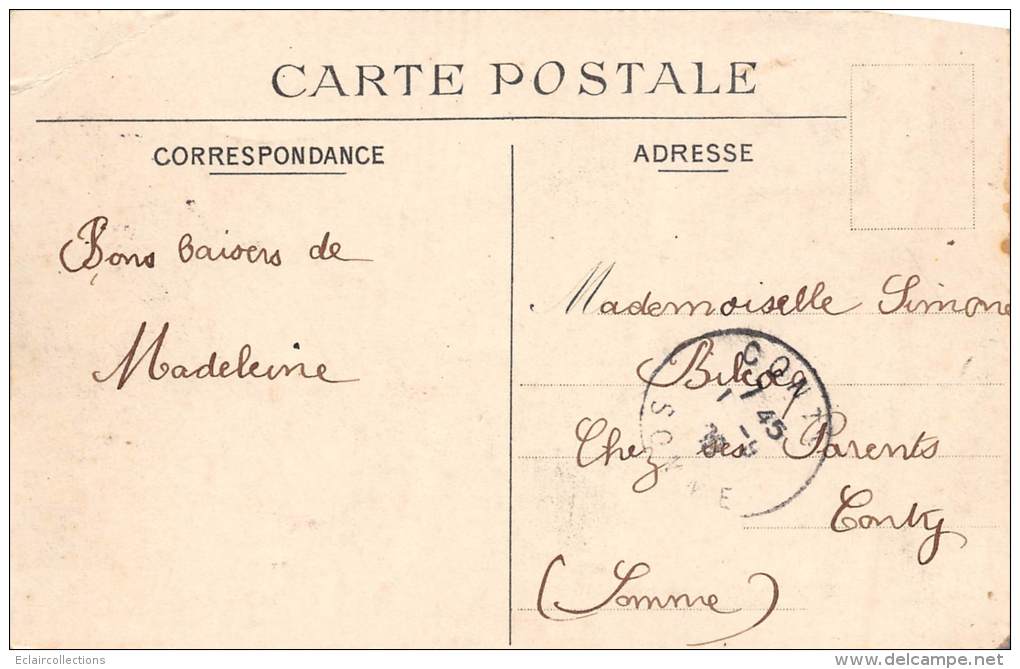 CARTE POSTALE
CORRESPONDANCE
Bons baisers de
Madeleine
ADRESSE
Mademoiselle Simone
Chez ses Parents
Conty
(Somme)
CONTY
7 45
SOMME
Eclaircollections
www.delcampe.net